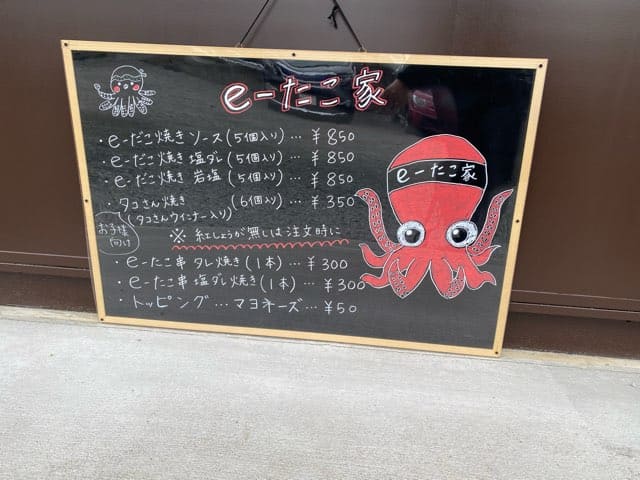 e-たこ家
・e-だこ焼き ソース (5個入り) … ¥850
・e-だこ焼き 塩ダレ (5個入り) … ¥850
・e-だこ焼き 岩塩 (5個入り) … ¥850
・タコさん焼き (6個入り) … ¥350
(タコさんウインナー入り)
お子様
向け
※ 紅しょうが無しは注文時に
・e-たこ串 タレ焼き (1本) … ¥300
・e-たこ串 塩ダレ焼き (1本) … ¥300
・トッピング … マヨネーズ … ¥50
e-たこ家